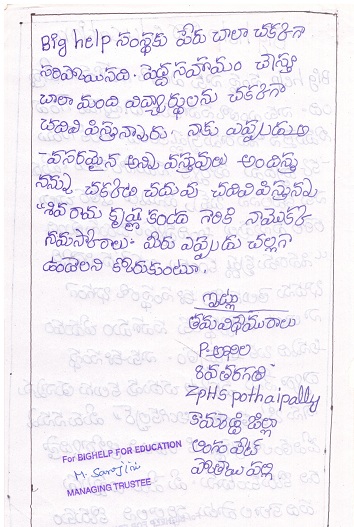 Big help సంస్థకు పేరు చాలా చక్కగా
సరిపోయినది. పెద్ద సహాయం చేస్తు
చాలా మంది విద్యార్థులను చక్కగా
చదివి పిస్తున్నారు. నాకు ఎప్పుడు అ
-వసరమైన అన్ని వస్తువులు అందిస్తు
నన్ను చక్కటి చదువు చదివిపిస్తున్న
"శివ రామ కృష్ణ కండా గారికి నాయొక్క
నమస్కారాలు" మీరు ఎప్పుడు చల్లగా
ఉండాలని కోరుకుంటూ.
ఇట్లు
తమ విధేయురాలు
P. అఖిల
8వ తరగతి
ZPHS pothaipally
కామారెడ్డి జిల్లా
లింగంపేట్
పోతాయిపల్లి
For BIGHELP FOR EDUCATION
M. Sarojini
MANAGING TRUSTEE